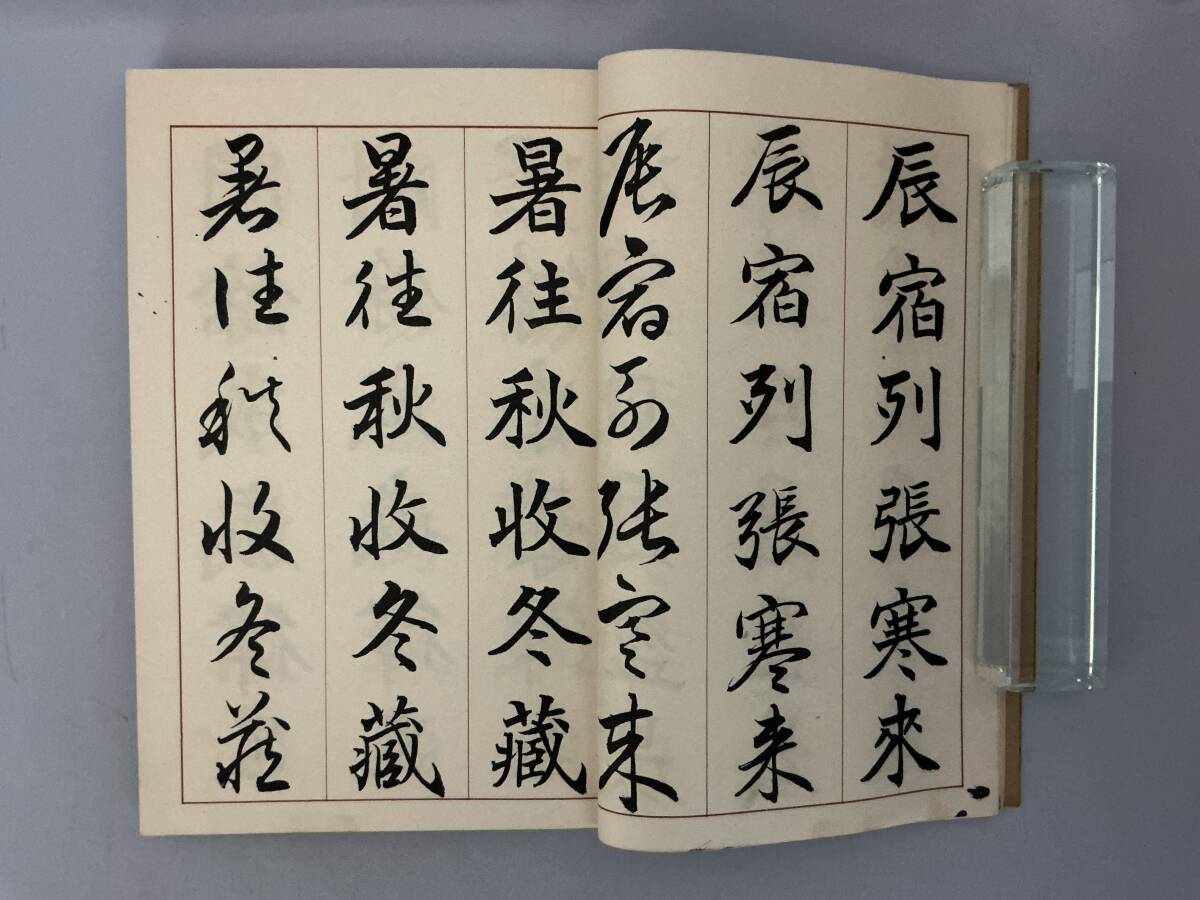 辰宿列張寒來
辰宿列張寒来
辰宿列張寒来
暑往秋收冬藏
暑往秋收冬藏
暑往秋收冬藏